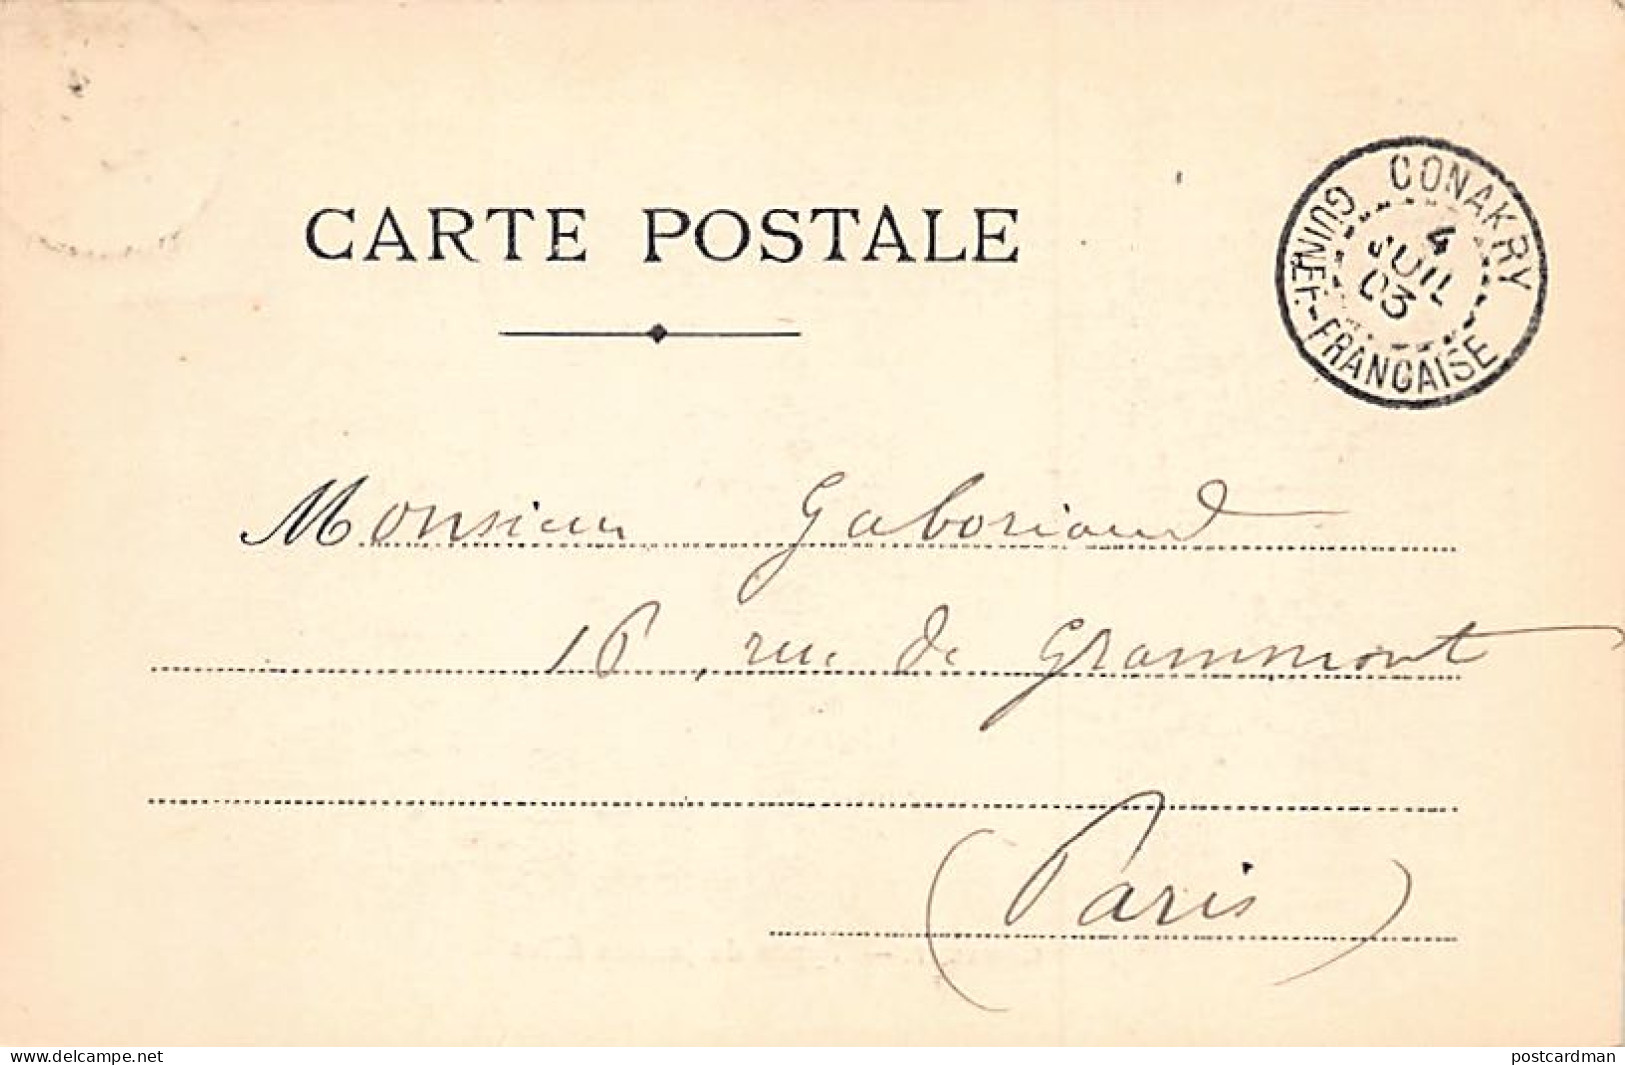 CARTE POSTALE
CONAKRY
4
JUIL
03
GUINÉE-FRANCAISE
Monsieur Gaboriaud
16, rue de Grammont
(Paris)
www.delcampe.net
postcardman